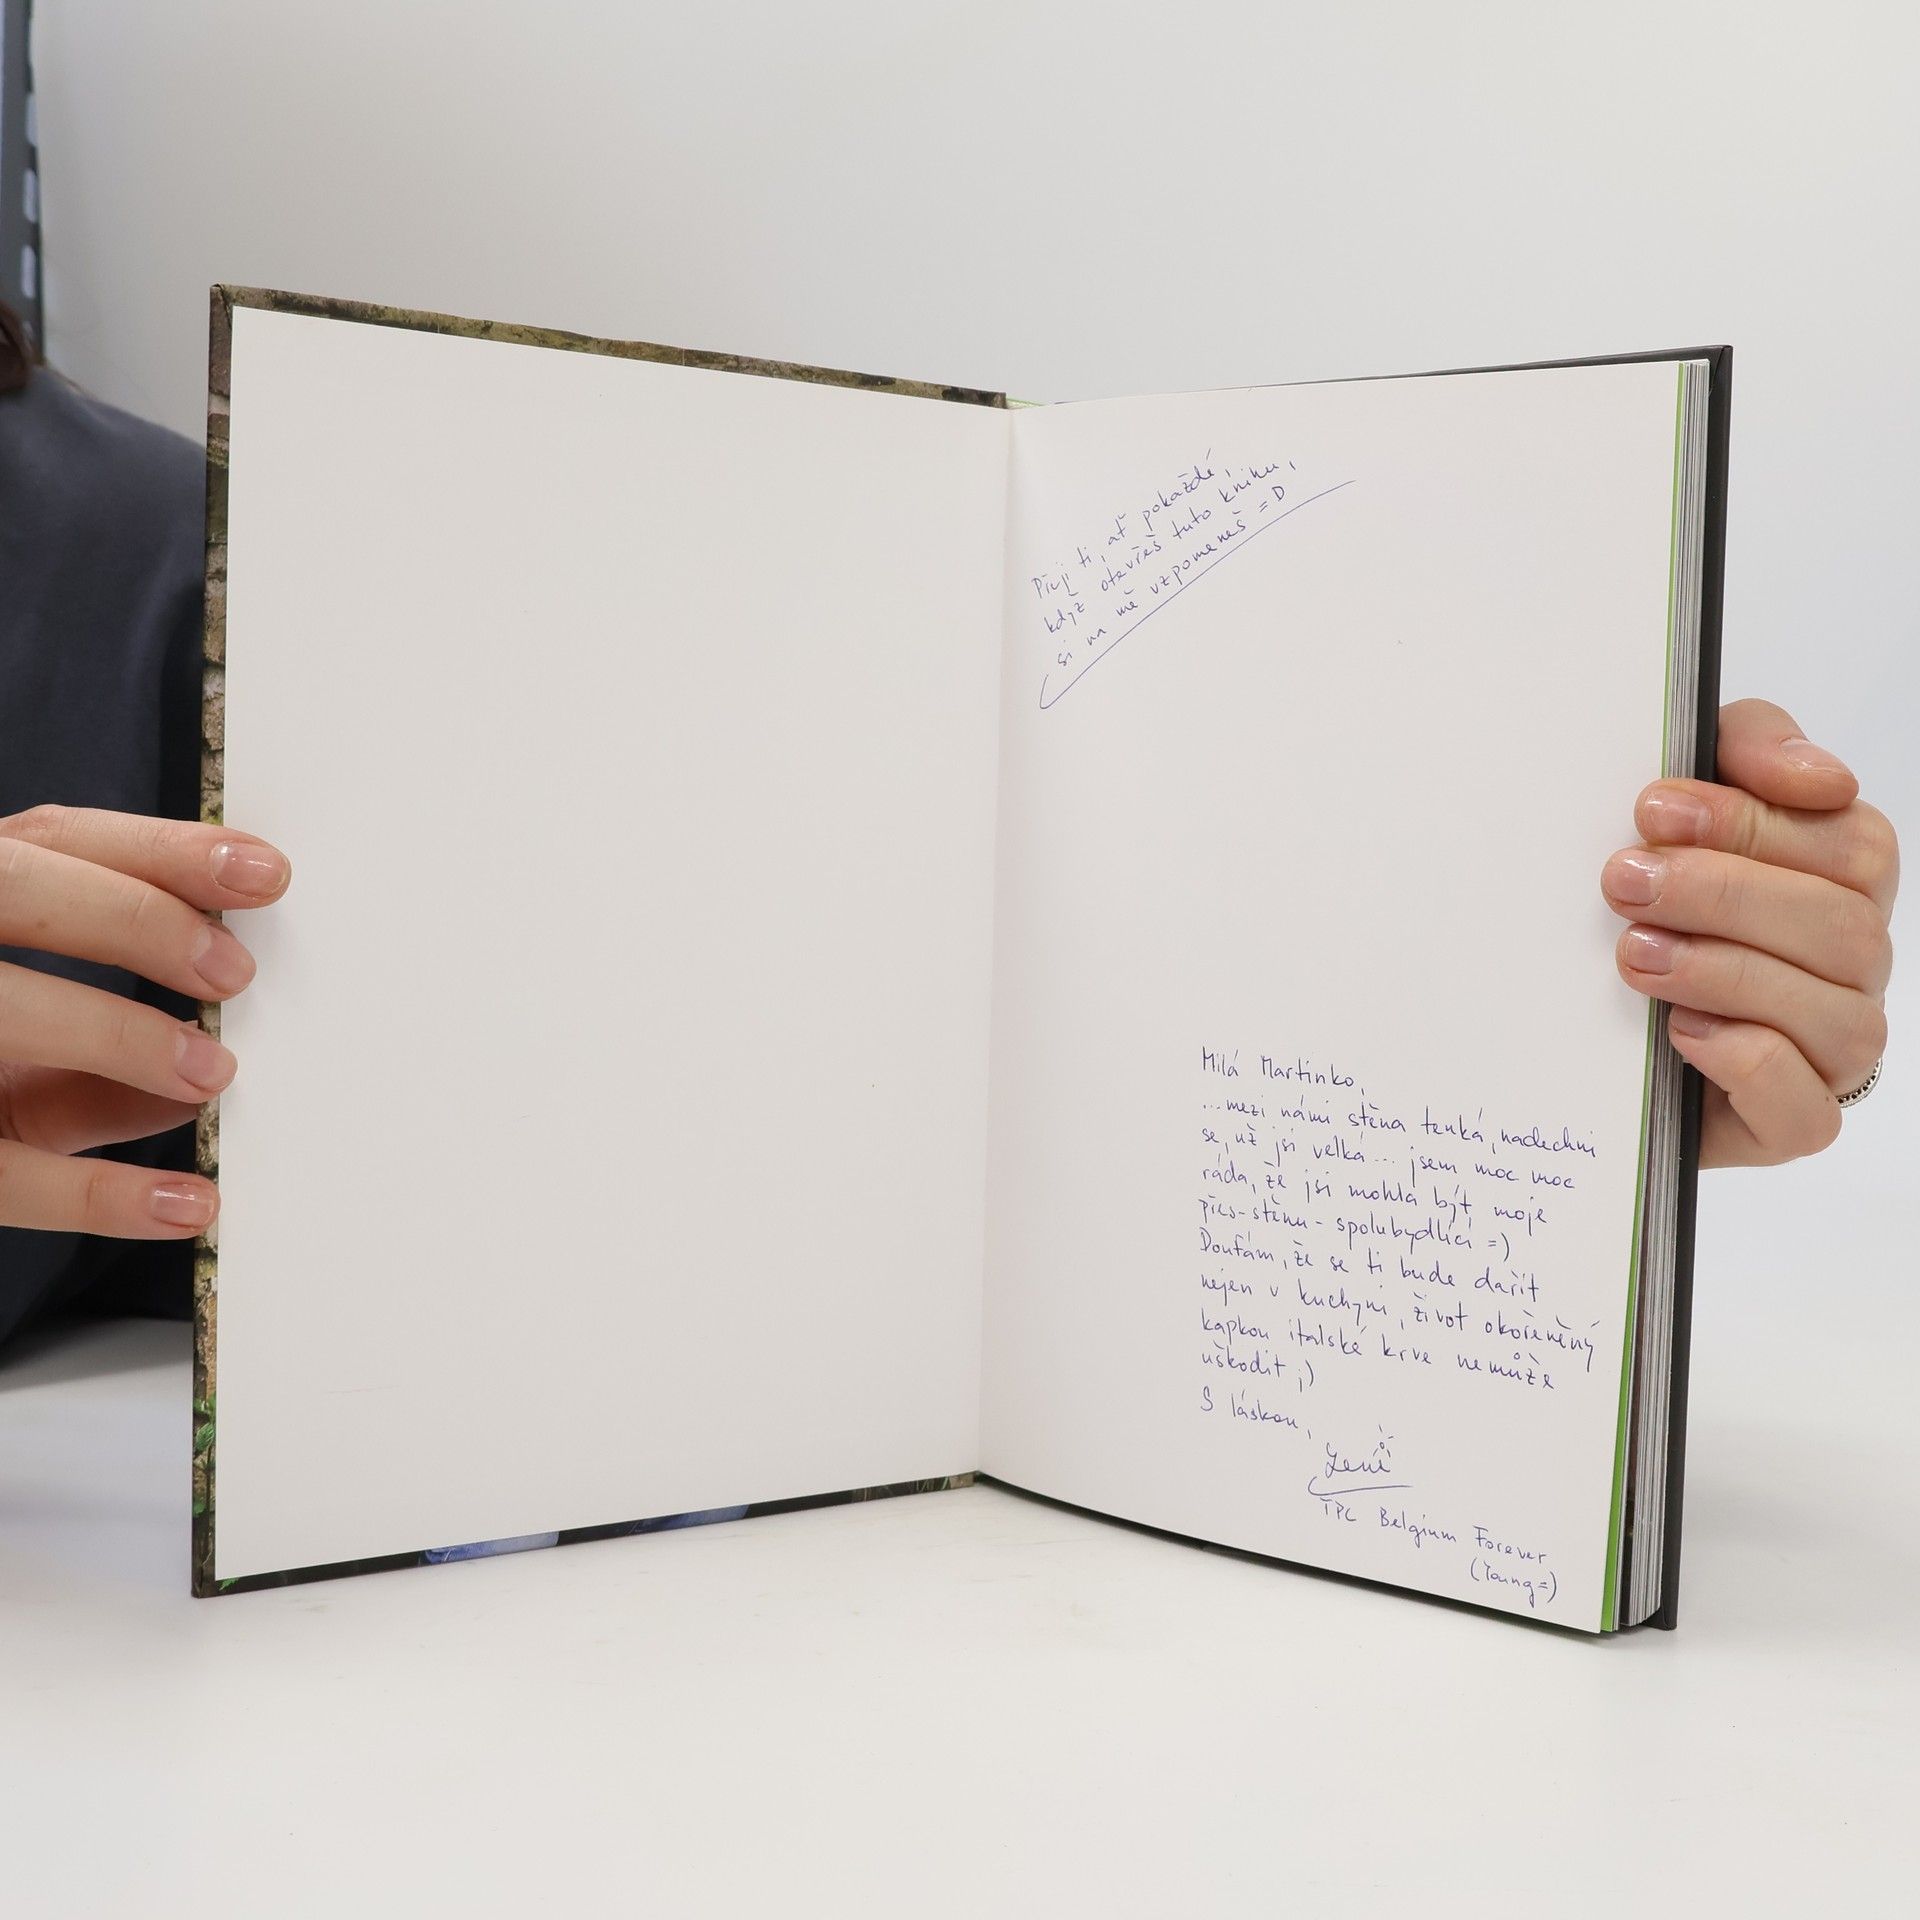 Přeji ti, ať pokaždé,
když otevřeš tuto knihu,
si na mě vzpomeneš =D
Milá Martinko,
...mezi námi stěna tenká, nadechni
se, už jsi velká... jsem moc moc
ráda, že jsi mohla být moje
přes-stěnu-spolubydlící =)
Doufám, že se ti bude dařit
nejen v kuchyni, život okořeněný
kapkou italské krve nemůže
uškodit ;)
S láskou,
TPC Belgium Forever
(Young=)